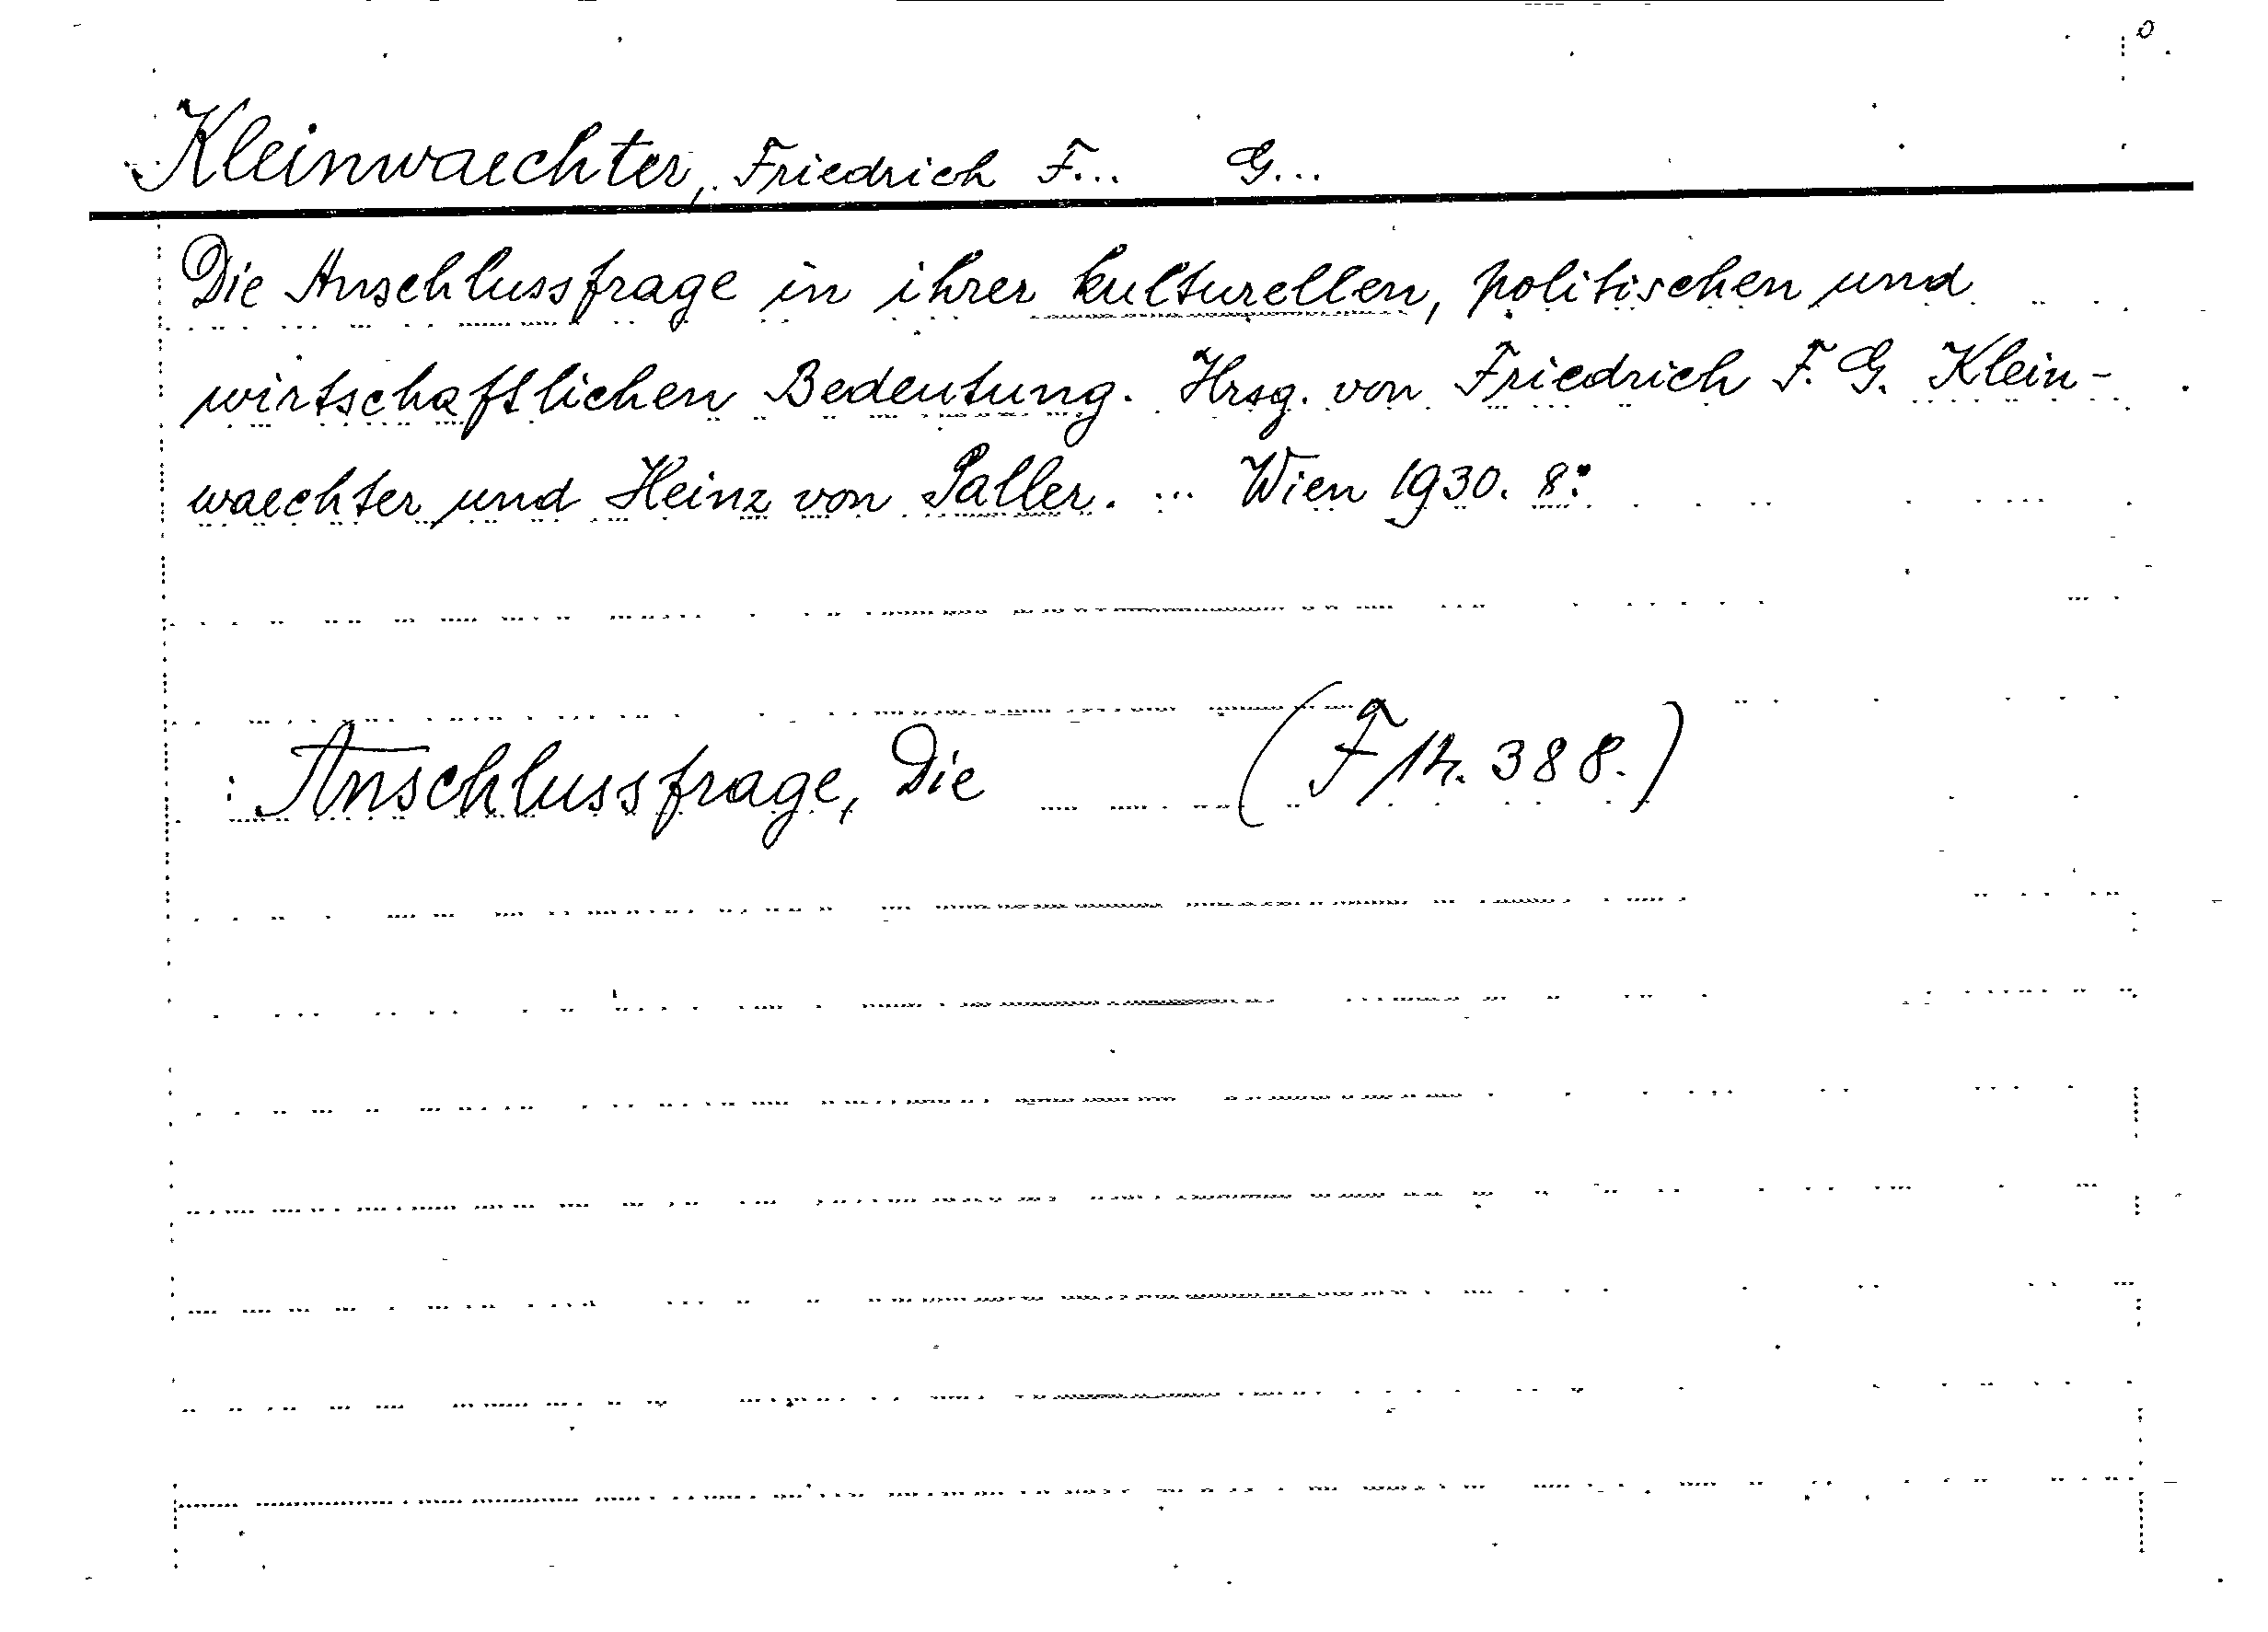 Kleinwaechter, Friedrich F... G...
Die Anschlussfrage in ihrer kulturellen, politischen und
wirtschaftlichen Bedeutung. Hrsg. von Friedrich F. G. Klein-
waechter und Heinz von Paller. ... Wien 1930. 8:
: Anschlussfrage, Die (F 14. 388.)